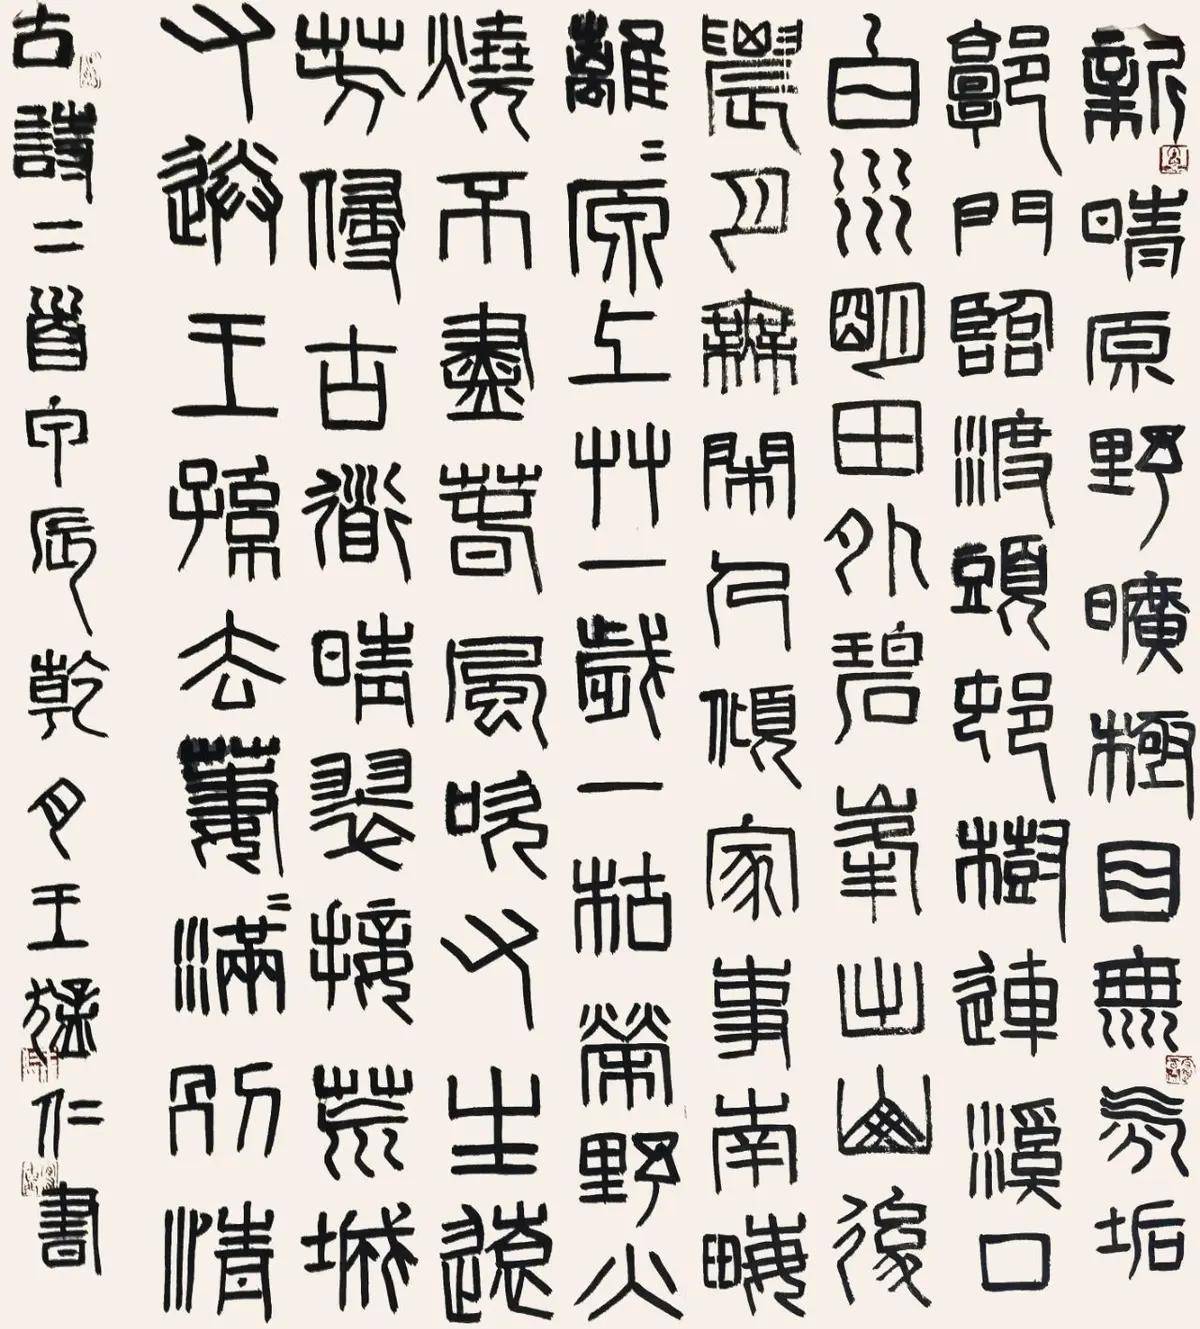 新晴原野曠極目無氛垢
郭門臨渡頭邨樹連溪口
白水明田外碧峯出山後
農月無閒人傾家事南畝
離〻原上艸一歲一枯榮野火
燒不盡春風吹又生遠
芳侵古道晴翠接荒城
又送王孫去萋〻滿別情
古詩二首甲辰乾月王猛仁書